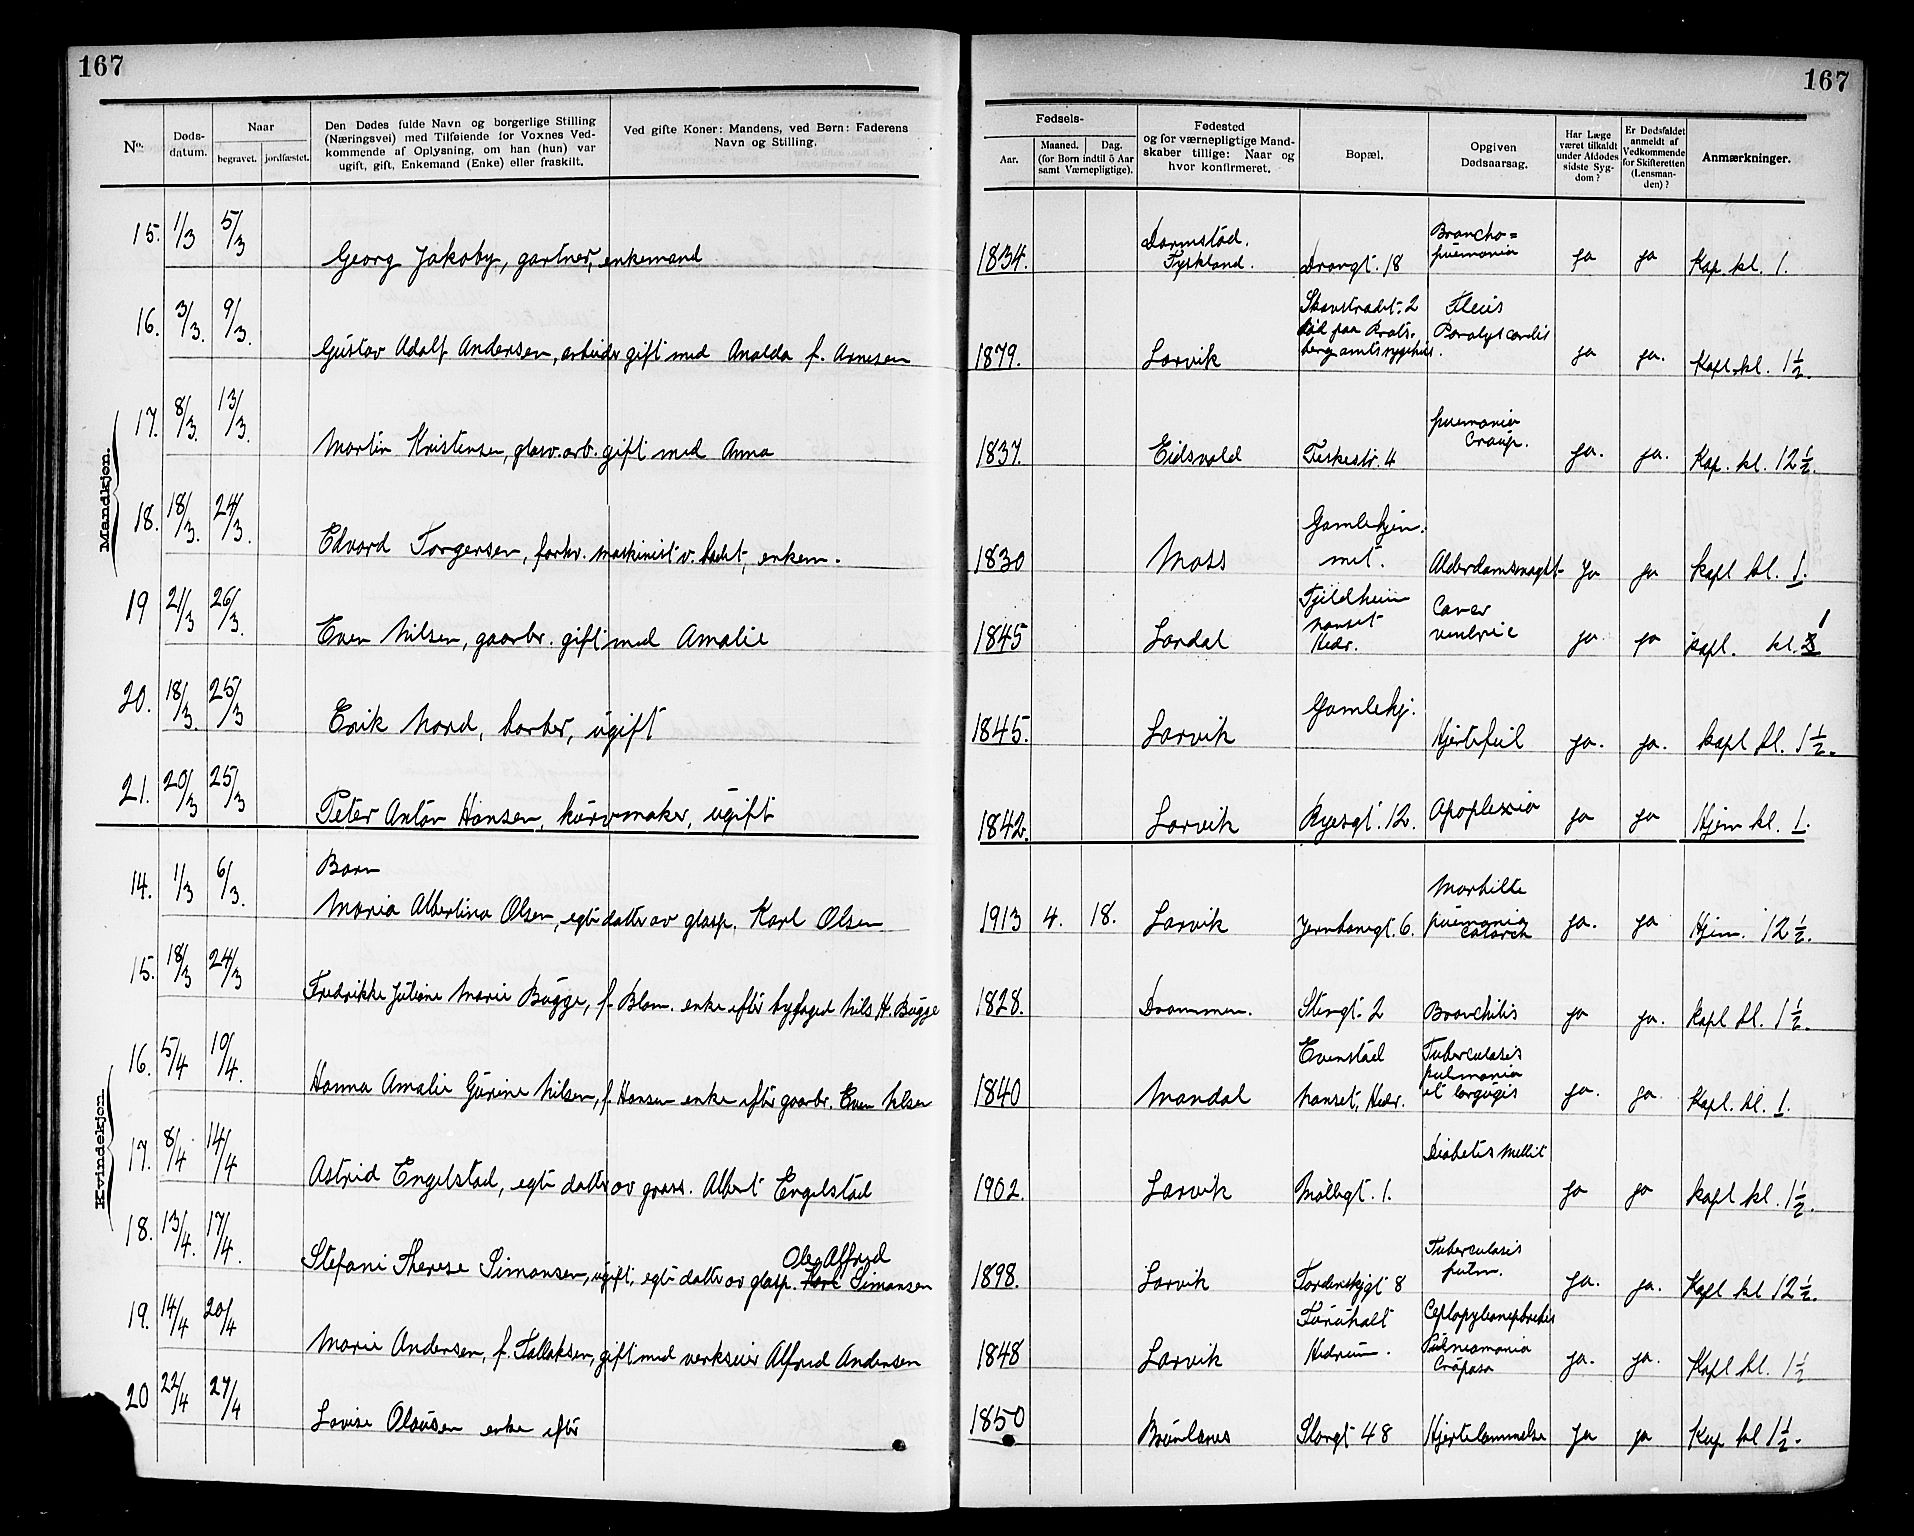 167
167
No.
Døds-
datum.
Naar
begravet.
jordfæstet.
Den Dødes fulde Navn og borgerlige Stilling
(Næringsvei) med Tilføiende for Voxnes Ved-
kommende af Oplysning, om han (hun) var
ugift, gift, Enkemand (Enke) eller fraskilt.
Ved gifte Koner: Mandens, ved Børn: Faderens
Navn og Stilling.
Fødsels-
Aar.
Maaned.
Dag.
(for Børn indtil 5 Aar
samt Værnepligtige).
Fødested
og for værnepligtige Mand-
skaber tillige: Naar og
hvor konfirmeret.
Bopæl.
Opgiven
Dødsaarsag.
Har Læge
været tilkaldt
under Afdødes
sidste Syg-
dom?
Er Dødsfaldet
anmeldt af
Vedkommende
for Skifteretten
(Lensman-
den)?
Anmærkninger.
Mandkjøn.
15. 1/3 5/3 Georg Jakoby, gartner, enkemand 1834. Darmstad. Tyskland. Drongt. 18 Broncho= pnemonia ja ja Kap. kl. 1.
16. 3/3. 9/3. Gustav Adolf Andersen, arbeider gift med Analda f. Arnesen 1879. Larvik Skavstradet. 2 død paa Brats- berg amts sygehus. Ileus Paralys cordis ja ja. Kapl. kl. 1 1/2.
17. 8/3. 13/3. Martin Kristensen, glasv. arb. gift med Anna 1837. Eidsvold Fiskestr. 4 pnemonia Croup. ja. ja. Kap. kl. 12 1/2.
18. 18/3. 24/3. Edvard Torgersen, forhv. maskinist v. badet, enkem. 1830 Moss Gamlehjem- met. Alderdomssvaght. Ja ja kapl kl. 1.
19 21/3 26/3. Even Nilsen, gaarbr. gift med Amalie 1845 Lardal Fjeldheim Nanset Hedr. Cancer ventric ja ja kapl. kl. 1
20. 18/3. 25/3 Erik Nord, barber, ugift 1845. Larvik Gamlehj. Hjertefeil ja. ja. kapl kl. 1 1/2.
21. 20/3 25/3 Peter Anton Hansen, kurvmaker, ugift 1842. Larvik Ryesgt. 12. Apoplexia ja ja Hjem kl. 1.
Kvindekjøn.
Barn
14. 1/3 6/3. Maria Albertina Olsen, egte datter av glasp. Karl Olsen 1913 4. 18. Larvik Jernbanegt. 6. Morbille pnemonia Catarch ja. ja Hjem. 12 1/2.
15. 18/3 24/3 Fredrikke Juliane Marie Bugge, f. Blom. enke efter byfoged Nils H. Bugge 1828. Drammen. Stengt. 2 Bronchitis ja ja. kapl kl. 1 1/2.
16. 5/4 10/4. Hanna Amalie Gurine Nilsen, f. Hansen enke efter gaarbr. Even Nilsen 1840 Mandal Evenstad Nanset, Hedr. Tuberculosis pulmonia et largugis ja. ja. Kapl. kl. 1.
17. 8/4 14/4 Astrid Engelstad, egte datter av gross. Albert Engelstad 1902. Larvik Møllegt. 1. Diabetis Mellit ja ja kapl kl. 1 1/2.
18. 13/4. 17/4. Stefani Therese Simonsen, ugift, egte datter av glasp. Karl Ole Alfred Simonsen 1898. Larvik Tordenskjgt 8 Tuberculosis pulm. ja. ja. Kapl kl 12 1/2.
19. 14/4 20/4 Marie Andersen, f. Tallaksen, gift med verkseier Alfred Andersen 1848 Larvik Furuholt Hedrum. Pulneomonia Crüposa ja. ja. Kapl kl. 1 1/2
20 22/4 27/4 Lovise Olausen enke efter 1850 Brunlanes Storgt 48 Hjertelammelse ja ja Kap kl 1 1/2.